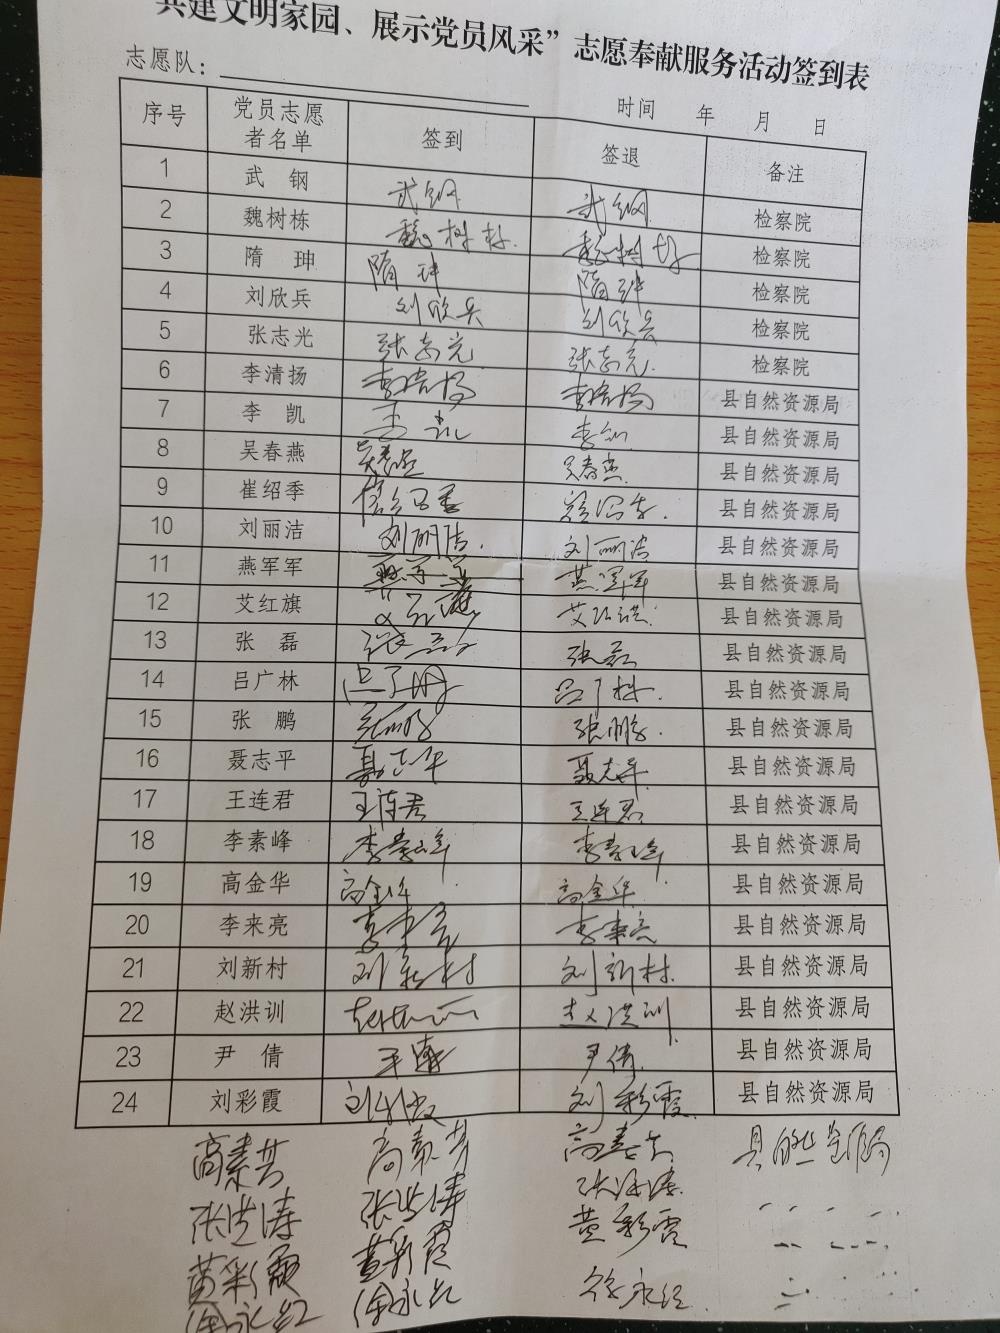 共建文明家园、展示党员风采”志愿奉献服务活动签到表
志愿队：
时间 年 月 日
序号 党员志愿者名单 签到 签退 备注
1 武 钢 武钢 武钢 检察院
2 魏树栋 魏树栋 魏树栋 检察院
3 隋 珅 隋珅 隋珅 检察院
4 刘欣兵 刘欣兵 刘欣兵 检察院
5 张志光 张志光 张志光 检察院
6 李清扬 李清扬 李清扬 县自然资源局
7 李 凯 李凯 李凯 县自然资源局
8 吴春燕 吴春燕 吴春燕 县自然资源局
9 崔绍季 崔绍季 崔绍季 县自然资源局
10 刘丽洁 刘丽洁 刘丽洁 县自然资源局
11 燕军军 燕军军 燕军军 县自然资源局
12 艾红旗 艾红旗 艾红旗 县自然资源局
13 张 磊 张磊 张磊 县自然资源局
14 吕广林 吕广林 吕广林 县自然资源局
15 张 鹏 张鹏 张鹏 县自然资源局
16 聂志平 聂志平 聂志平 县自然资源局
17 王连君 王连君 王连君 县自然资源局
18 李素峰 李素峰 李素峰 县自然资源局
19 高金华 高金华 高金华 县自然资源局
20 李来亮 李来亮 李来亮 县自然资源局
21 刘新村 刘新村 刘新村 县自然资源局
22 赵洪训 赵洪训 赵洪训 县自然资源局
23 尹 倩 尹倩 尹倩 县自然资源局
24 刘彩霞 刘彩霞 刘彩霞 县自然资源局
高素芳 高素芳 高素芳 县自然资源局
张洪涛 张洪涛 张洪涛
黄彩霞 黄彩霞 黄彩霞
徐永红 徐永红 徐永红